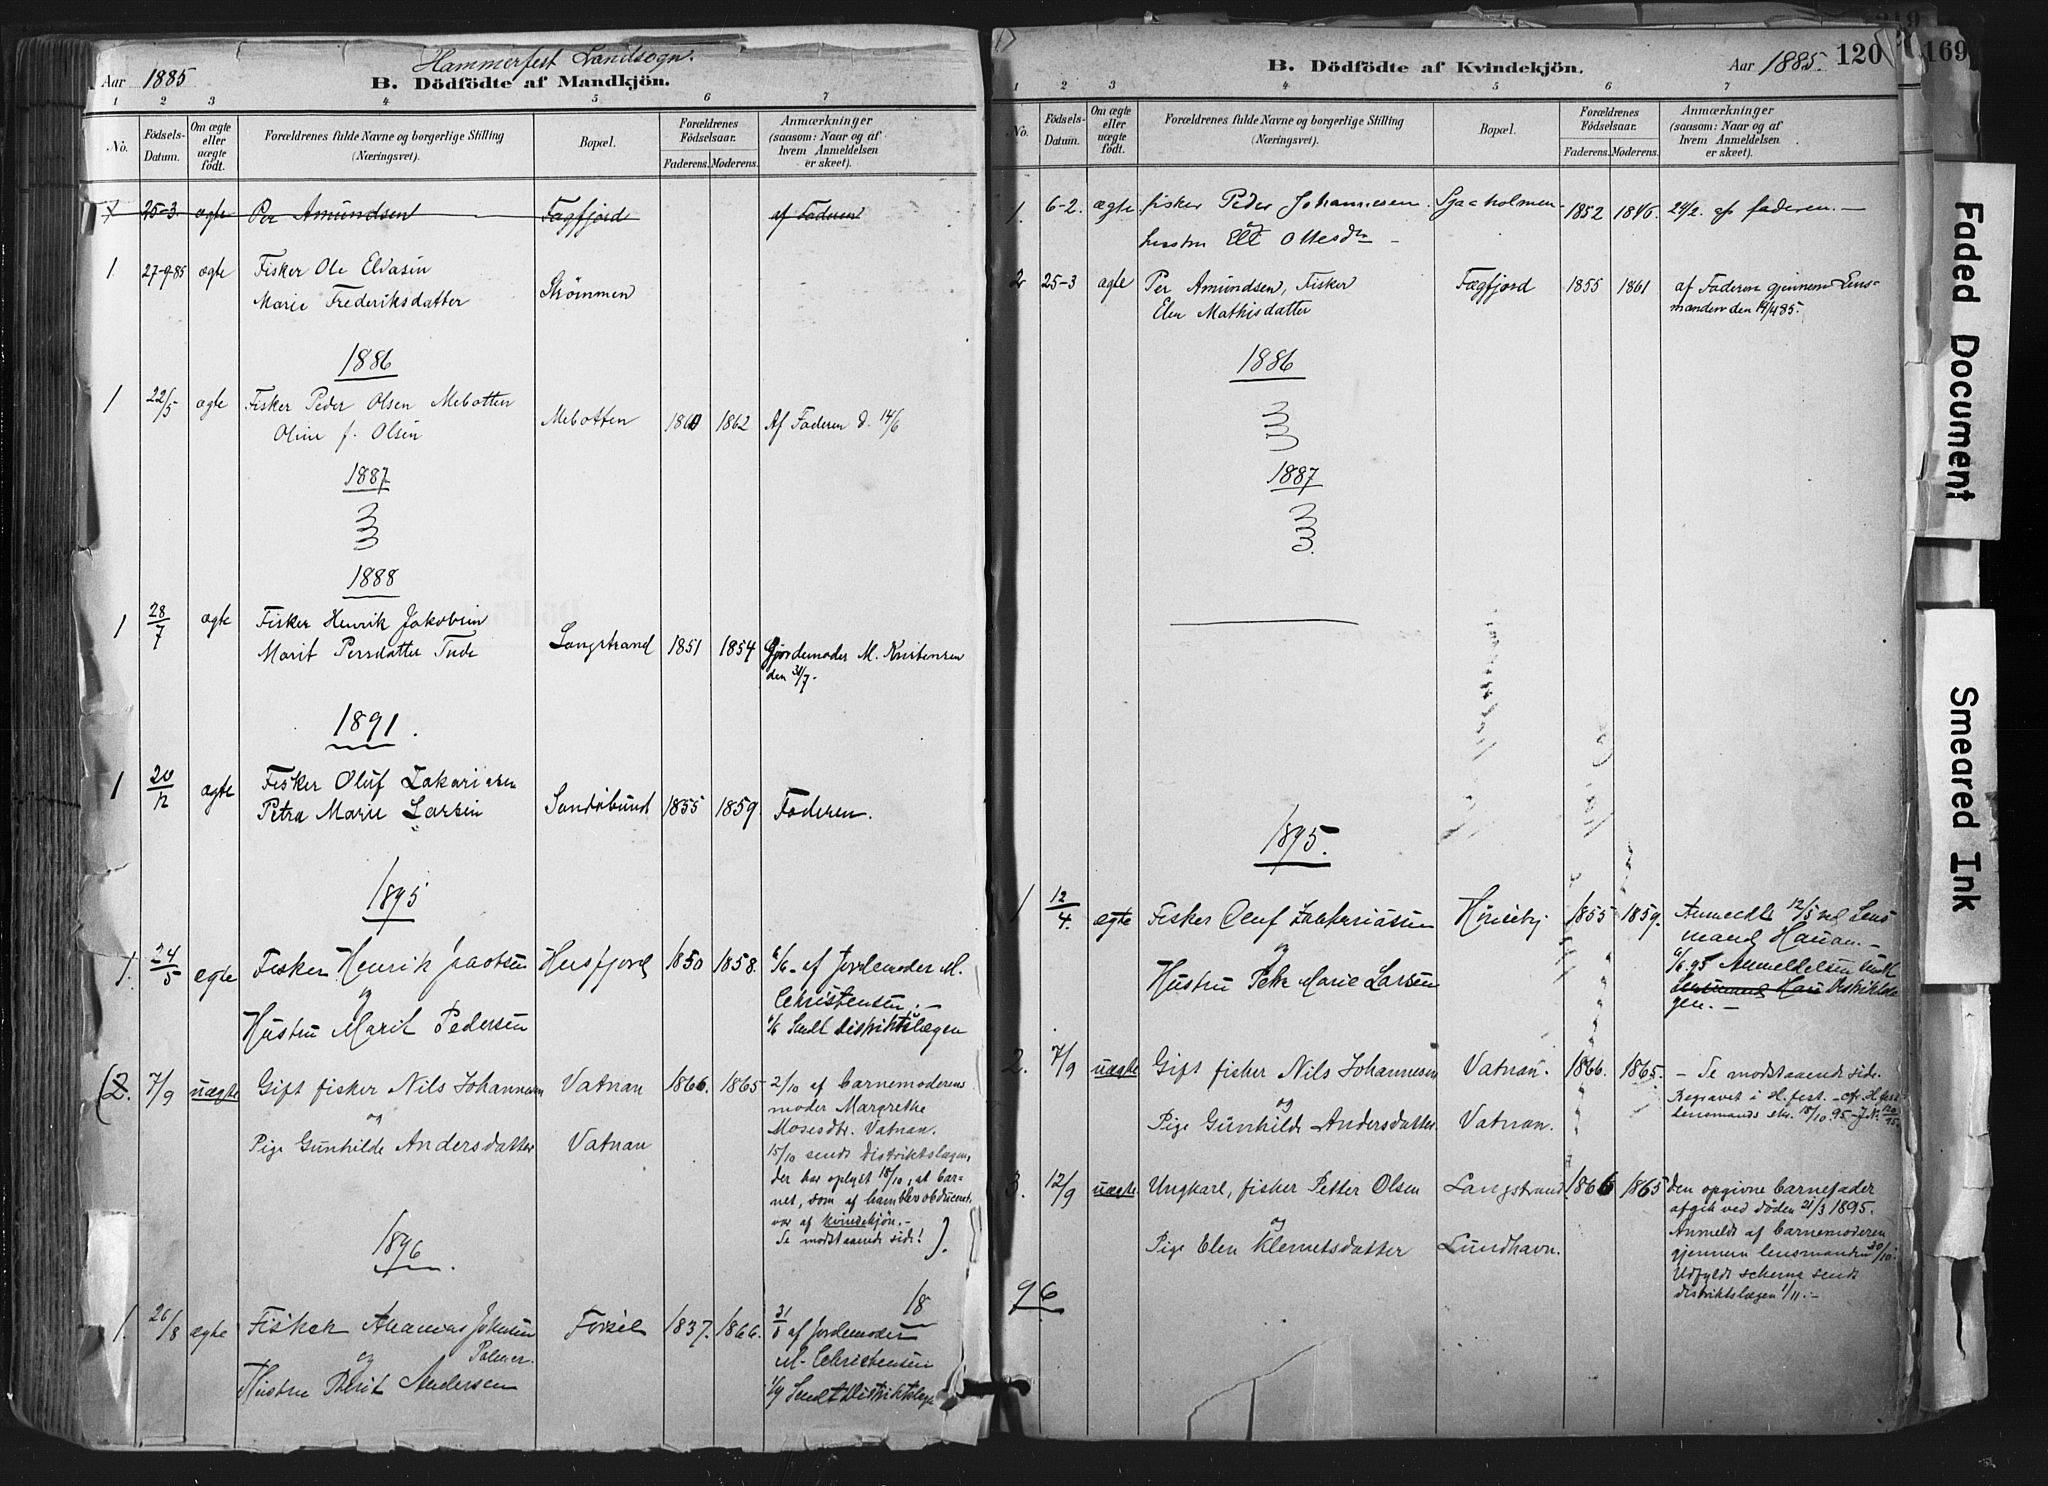 Hammerfest Landsogn.
Aar 1885
B. Dödfödte af Mandkjön.
1 2 3 4 5 6 7
No.
Födsels-Datum.
Om ægte eller uægte födt.
Forældrenes fulde Navne og borgerlige Stilling (Næringsvei).
Bopæl.
Forældrenes Födselsaar.
Faderens. Moderens.
Anmærkninger (saasom: Naar og af hvem Anmeldelsen er skeet).
25-3. ægte Per Amundsen Fægfjord af Faderen
1. 27-9-85 ægte Fisker Ole Elvasen
Marie Frederiksdatter Strømmen
1886
1 22/5 ægte Fisker Peder Olsen Mebotten
Oline f. Olsen Mebotten 1860 1862 Af Faderen d. 14/6
1887
1888
1 28/7 ægte Fisker Henrik Jakobsen
Marit Persdatter Langstrand 1851 1854 Gjordemoder M. Kristensen
den 31/7.
1891.
1 20/12 ægte Fisker Oluf Zakariasen
Petra Marie Larsen Sandøbund 1855 1859. Faderen.
1895
1. 24/5 egte Fisker Henrik Jacobsen Hersfjord 1850 1858. 6/6 af Jordemoder M.
og Christensen.
Hustru Marit Pedersen 6/6 Sendt Distriktslægen
(2. 7/9 uægte Gift fisker Nils Johannesen Vatnan 1866. 1865 2/10 af barnemoderens
og moder Margrethe
Mosesdtr. Vatnan.
Pige Gunhilde Andersdatter Vatnan
15/10 sendt distriktslægen,
der har oplyst 18/10, at bar-
net, som af ham blev obduceret,
var af kvindekjön.-
Se modstaaende side! ).
1896.
18
1. 26/8 ægte Fisker Johnsen Forsöl 1837. 1866. 31/8 af Jordemoder
og Palmer. M. Christensen
Hustru Berit Andersen 1/9 Sendt Distriktslægen
B. Dödfödte af Kvindekjön.
Aar 1885. 120 169
1 2 3 4 5 6 7
No.
Födsels-Datum.
Om ægte eller uægte födt.
Forældrenes fulde Navne og borgerlige Stilling (Næringsvei).
Bopæl.
Forældrenes Födselsaar.
Faderens. Moderens.
Anmærkninger (saasom: Naar og af hvem Anmeldelsen er skeet).
1. 6-2. ægte fisker Peder Johannesen. 1852 1846. 24/2. af faderen.
hustru Ottesdtr
2 25-3 ægte Per Amundsen, Fisker Fægfjord 1855 1861 af Faderen gjennem Lens-
Elen Mathisdatter manden den 14/4 85.
1886
1887
1895.
1 12/4. ægte Fisker Oluf Zakariasen 1855 1859. Anmeldt 12/5 ved Lens
og mand Hauan.-
6/6 95 Anmeldelsen sendt
Hustru Petra Marie Larsen Lensmand Hau Distriktslæ
gen.-
2. 7/9 uægte Gift fisker Nils Johannesen Vatnan. 1866. 1865. - Se modstaaende side.
og Begravet i H.fest. - cfr. H.fest
lensmands skr. 18/10 95 - J.N.
Pige Gunhilde Andersdatter Vatnan.
3. 12/9 uægte. Ungkarl, fisker Petter Olsen Langstrand 1866 1865 den opgivne barnefader
og afgik ved døden 21/3 1895.
Anmeldt af barnemoderen
Pige Elen Klemetsdatter Lundhavn. gjennem lensmanden 30/10.
Udfyldt schema sendt
distriktslægen 1/11.-
96
Faded Document
Smeared Ink